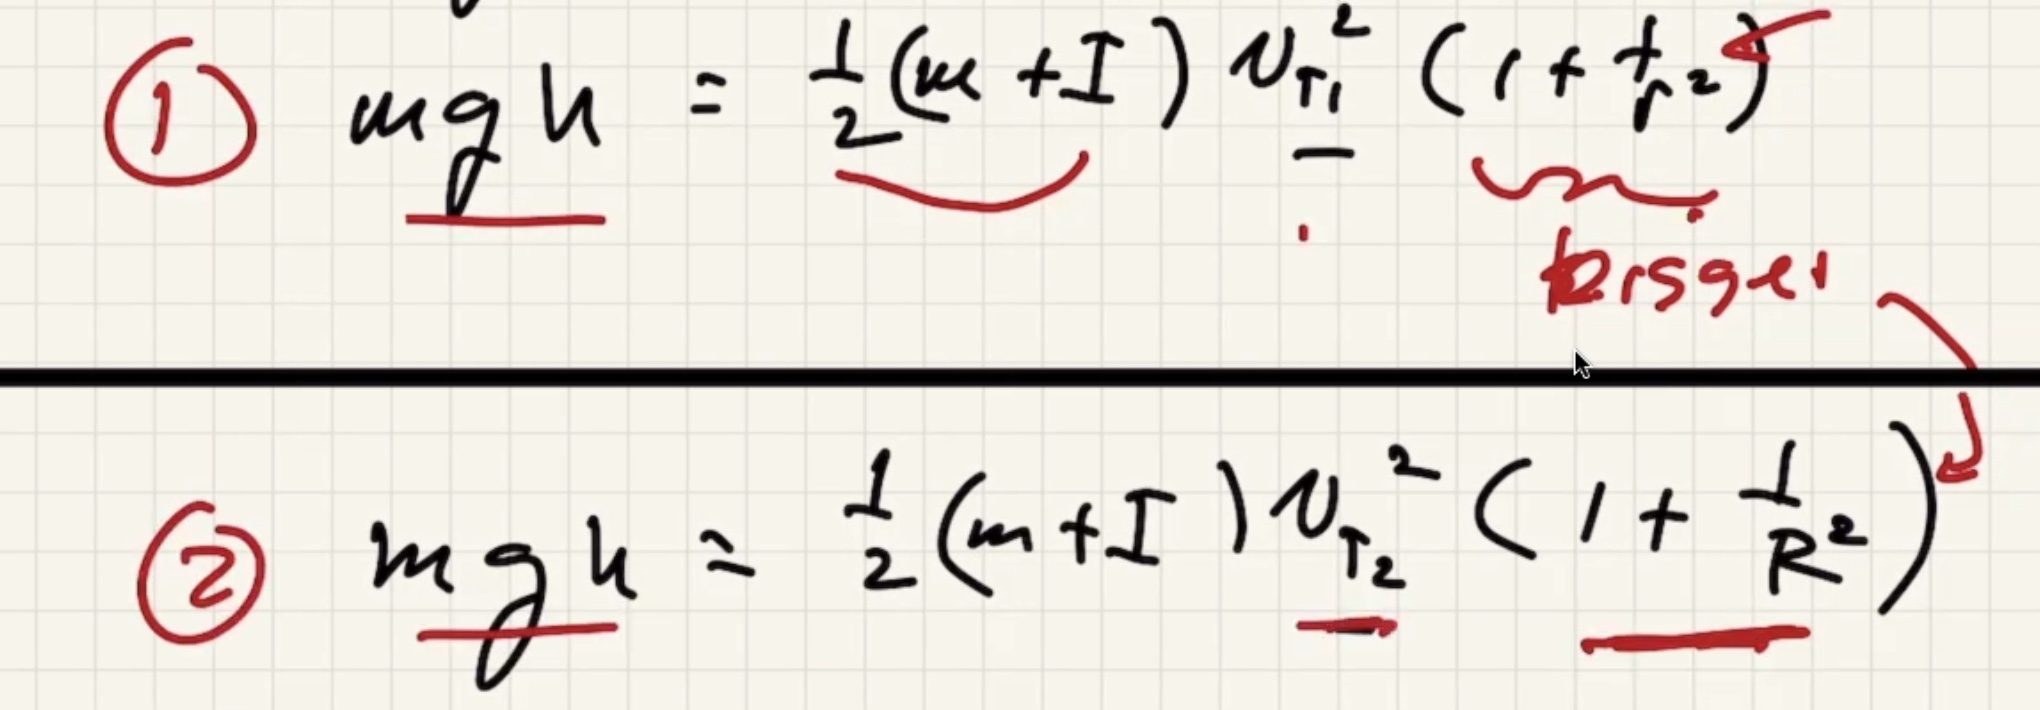 ① mgh = 1/2 (m + I) v_T₁² (1 + 1/r²)
② mgh = 1/2 (m + I) v_T₂² (1 + 1/R²)